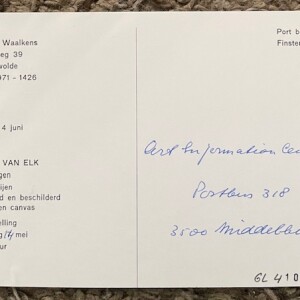 Waalkens
eg 39
wolde
971 - 1426
4 juni
VAN ELK
gen
ijen
d en beschilderd
en canvas
elling
mei
ur
Port b
Finster
Art Information Cen
Postbus 318
3500 Middelbu
GL 410